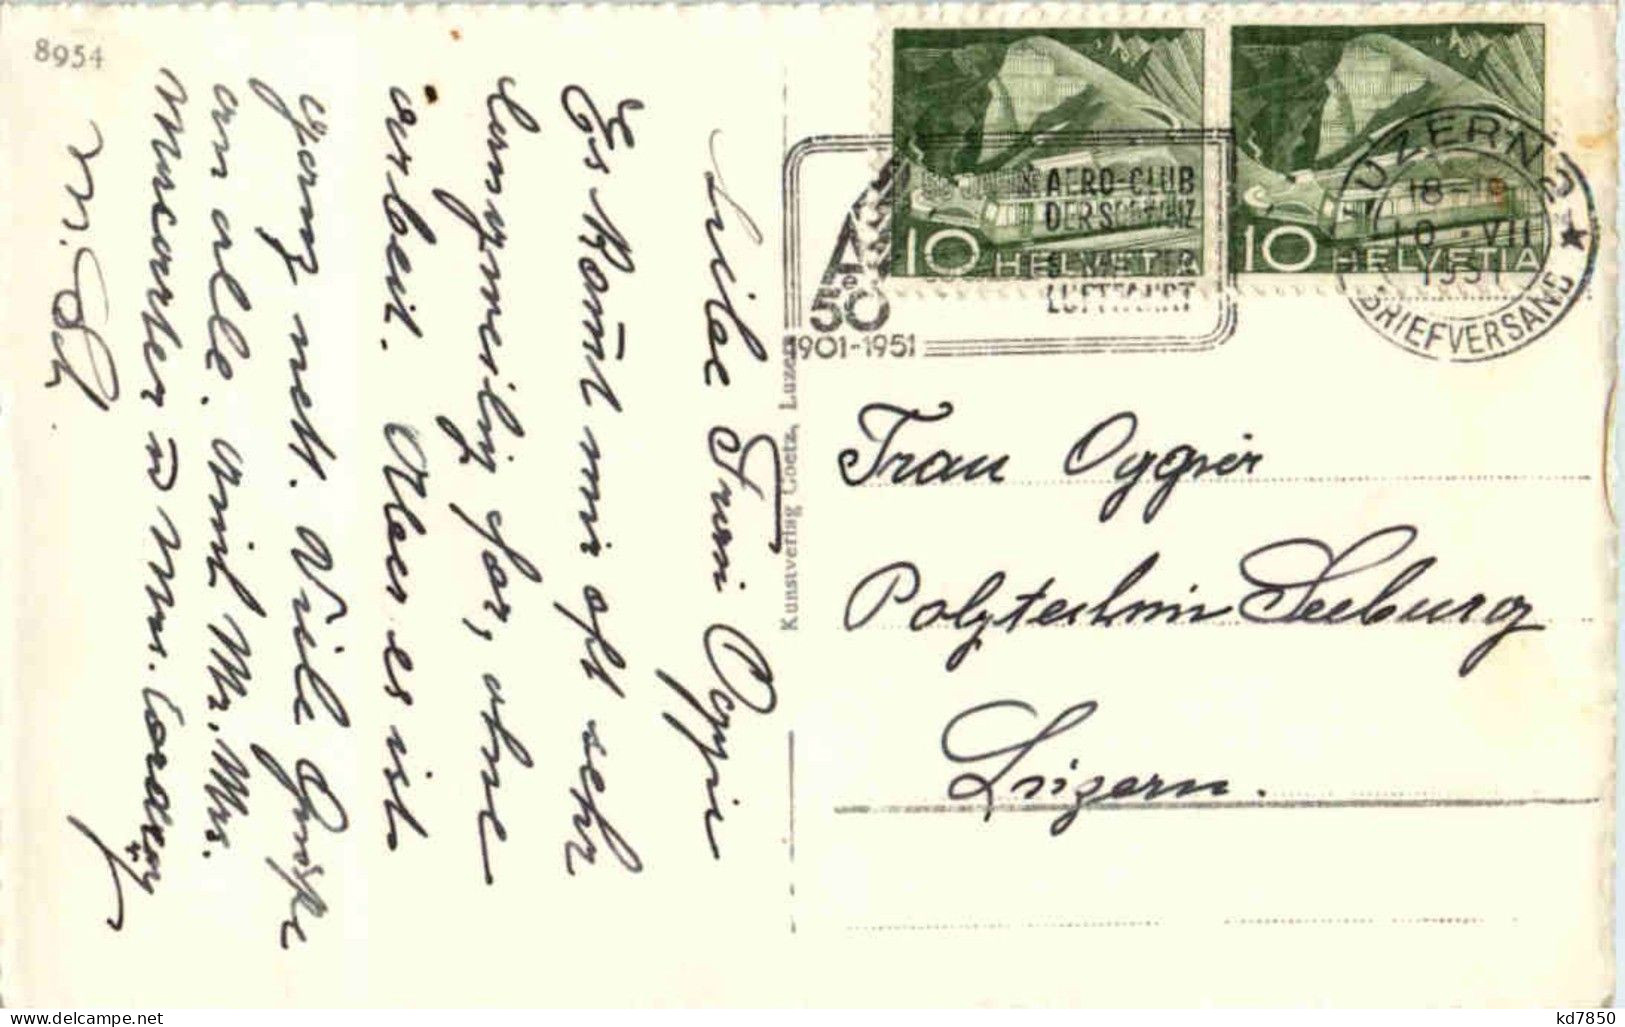 8954
AERO-CLUB
DER SCHWEIZ
LUFTFAHRT
50
1901-1951
10 HELVETIA
10 HELVETIA
LUZERN 2
18-19
10.VII
1951
BRIEFVERSAND
Kunstverlag Goetz, Luzern
Liebe Frau Oggier
Es kommt mir oft sehr
langweilig vor, ohne
arbeit. Aber es ist
ganz nett. Viele Grüsse
an alle. und Mr. Mrs.
Frau Oggier
Polytechnic Seeburg
Luzern.
kd7850